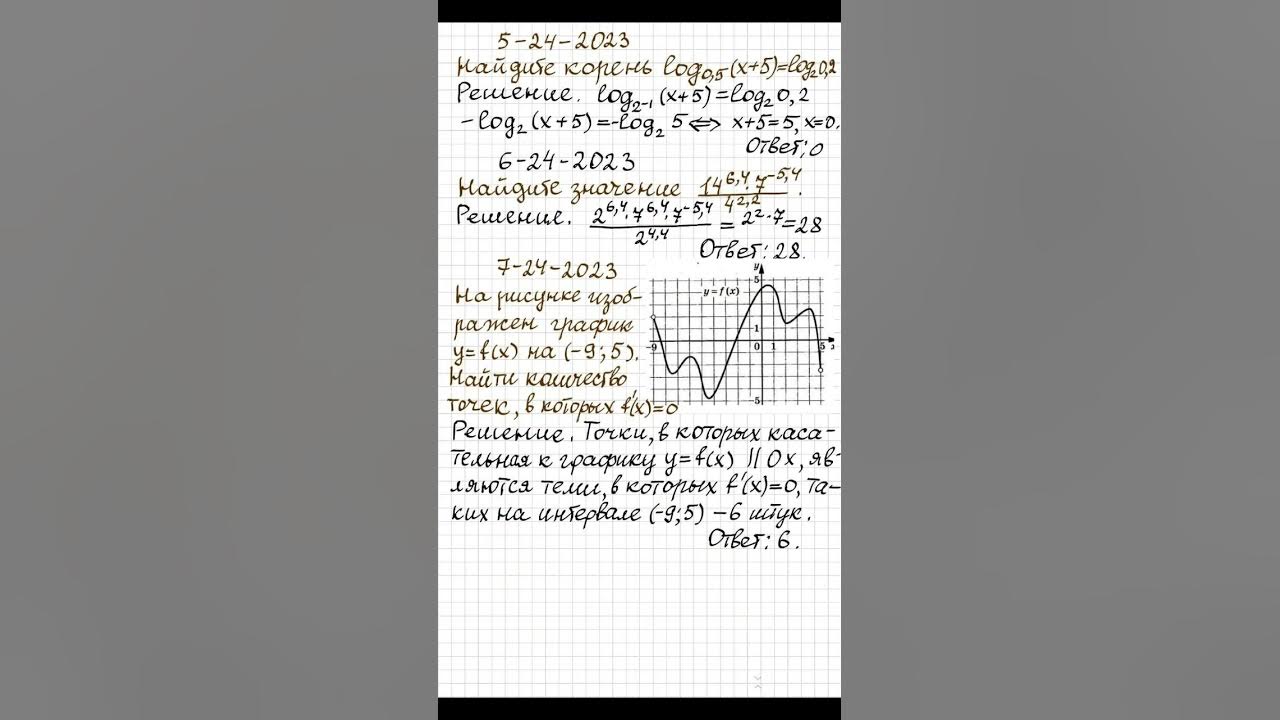 5-24-2023
Найдите корень log₀,₅(x+5)=log₂0,2
Решение. log₂₋₁(x+5)=log₂0,2
-log₂(x+5)=-log₂5⇔ x+5=5, x=0.
Ответ: 0
6-24-2023
Найдите значение 14^6,4·7^-5,4 / 4^2,2.
Решение. 2^6,4·7^6,4·7^-5,4 / 2^4,4 = 2²·7=28
Ответ: 28.
7-24-2023
На рисунке изоб-
ражен график
y=f(x) на (-9; 5).
Найти количество
точек, в которых f'(x)=0
y
5
y=f(x)
1
-9
0
1
5
-5
Решение. Точки, в которых каса-
тельная к графику y=f(x) || Ox, яв-
ляются теми, в которых f'(x)=0, та-
ких на интервале (-9;5) – 6 штук.
Ответ: 6.